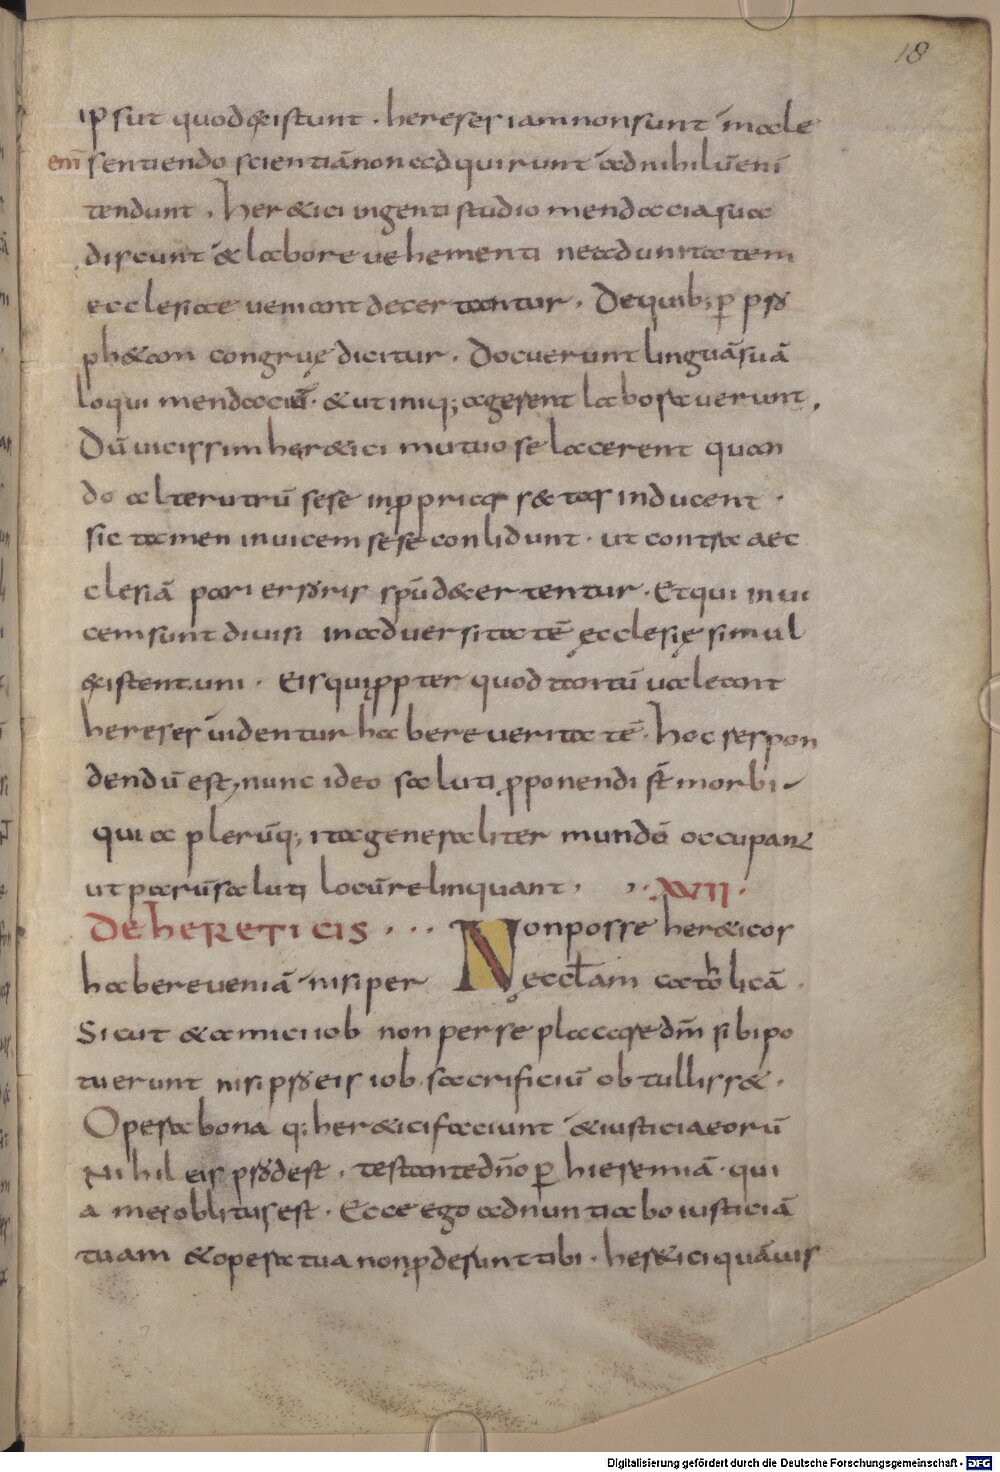 18
ipsut quod existunt . hereses iam non sunt in male
eni᷃ sentiendo scientiā non adquirunt ad nihilū eni᷃
tendunt . her&ici ingenti studio mendacia sua
discunt & labore uehementi ne ad unitatem
ecclesiae ueniant decertantur . De quib; ꝑ ꝓ
ph&am congruę dicitur . Docuerunt linguā suā
loqui mendaciū · & ut iniq; agerent laborauerunt .
Dū uicissim her&ici mutuo se lacerent quan
do alterutrū sese in ꝓprias s&tas inducent .
sic tamen inuicem sese conlidunt . ut contra aec
clesiā pari erroris spū decertentur . Et qui inui
cem sunt diuisi in aduersitatē ęcclesię simul
existent uni . Eis qui ꝓpter quod tantū ualeant
hereses uidentur habere ueritatē . hoc respon
dendū est, nunc ideo saluti ꝓponendi st̄ morbi
quia plerūq; ita generaliter mundū occupant
ut parū saluti locū relinquant . XVII .
DE HERETICIS . . . Non posse her&icos
habere ueniā nisi per ęccl̄am catholicā .
Sicut & amici iob non per se placare dm̄ sibi po
tuerunt nisi pro eis iob sacrificiū obtuliss& .
Opera bona q; her&ici faciunt & iusticia eorū
Nihil eis prodest . testante dn̄o ꝑ hieremiā . qui
a mei oblitus est . Ecce ego adnuntiabo iusticiā
tuam & opera tua non ꝓderunt tibi . her&ici quāuis
Digitalisierung gefördert durch die Deutsche Forschungsgemeinschaft - DFG